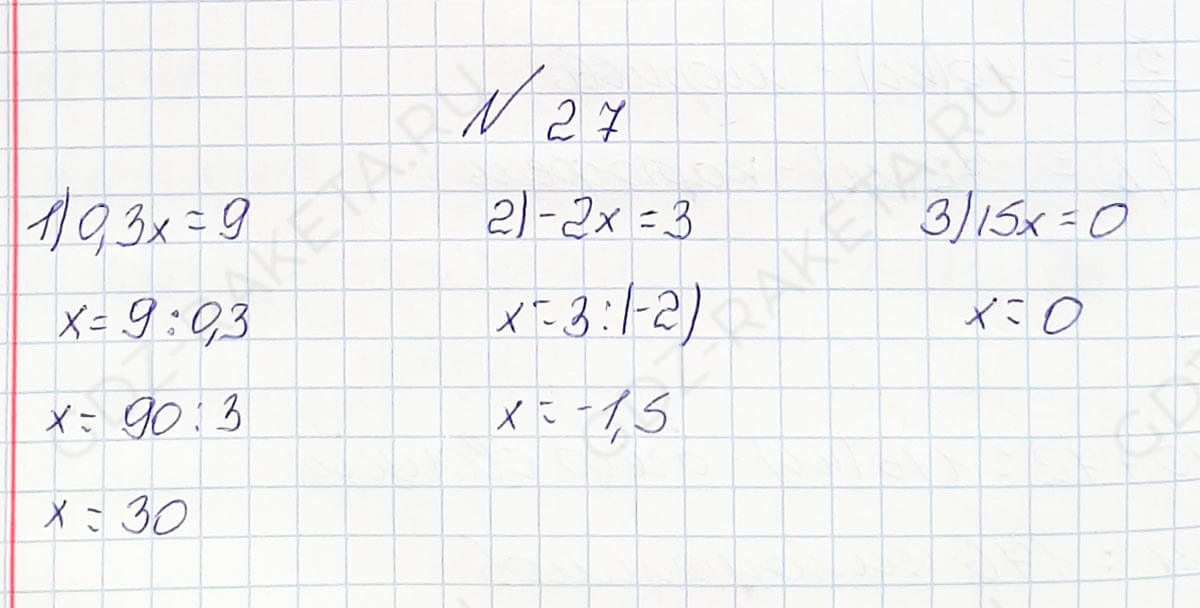 N 27
1) 0,3x = 9
x = 9 : 0,3
x = 90 : 3
x = 30
2) -2x = 3
x = 3 : (-2)
x = -1,5
3) 15x = 0
x = 0
GDZ-RAKETA.RU
GDZ-RAKETA.RU
GD